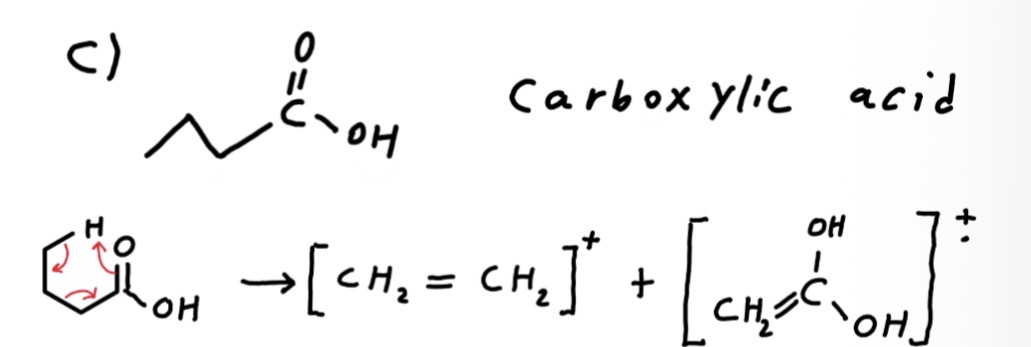 c)
O
C
OH
Carboxylic acid
H
O
OH
→ [CH₂ = CH₂]⁺ + [CH₂=C
OH
OH]⁺·